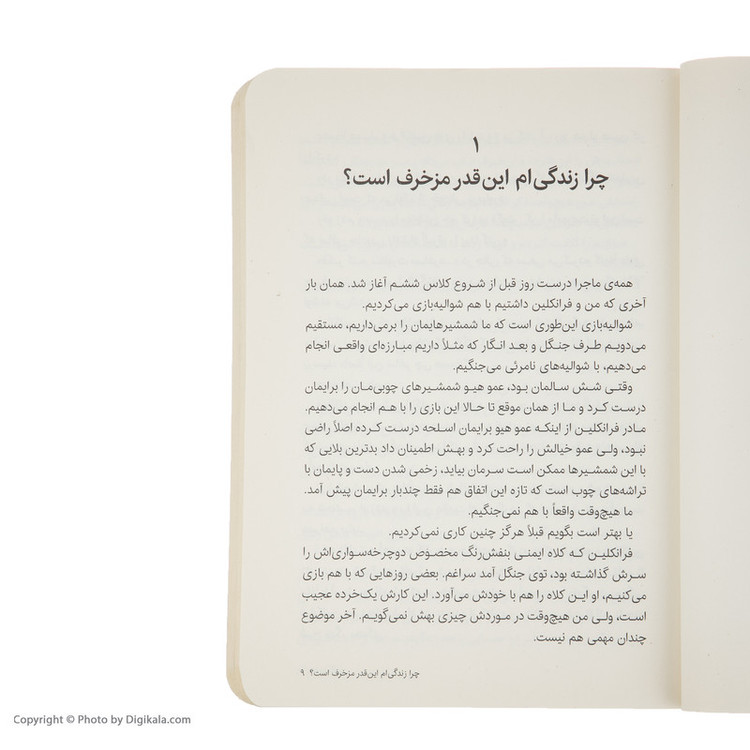 ۱
چرا زندگی‌ام این‌قدر مزخرف است؟
همه‌ی ماجرا درست روز قبل از شروع کلاس ششم آغاز شد. همان بار
آخری که من و فرانکلین داشتیم با هم شوالیه‌بازی می‌کردیم.
شوالیه‌بازی این‌طوری است که ما شمشیرهایمان را برمی‌داریم، مستقیم
می‌دویم طرف جنگل و بعد انگار که مثلاً داریم مبارزه‌ای واقعی انجام
می‌دهیم، با شوالیه‌های نامرئی می‌جنگیم.
وقتی شش سالمان بود، عمو هیو شمشیرهای چوبی‌مان را برایمان
درست کرد و ما از همان موقع تا حالا این بازی را با هم انجام می‌دهیم.
مادر فرانکلین از اینکه عمو هیو برایمان اسلحه درست کرده اصلاً راضی
نبود، ولی عمو خیالش را راحت کرد و بهش اطمینان داد بدترین بلایی که
با این شمشیرها ممکن است سرمان بیاید، زخمی شدن دست و پایمان با
تراشه‌های چوب است که تازه این اتفاق هم فقط چندبار برایمان پیش آمد.
ما هیچ‌وقت واقعاً با هم نمی‌جنگیم.
یا بهتر است بگویم قبلاً هرگز چنین کاری نمی‌کردیم.
فرانکلین که کلاه ایمنی بنفش‌رنگ مخصوص دوچرخه‌سواری‌اش را
سرش گذاشته بود، توی جنگل آمد سراغم. بعضی روزهایی که با هم بازی
می‌کنیم، او این کلاه را هم با خودش می‌آورد. این کارش یک‌خرده عجیب
است، ولی من هیچ‌وقت در موردش چیزی بهش نمی‌گویم. آخر موضوع
چندان مهمی هم نیست.
چرا زندگی‌ام این‌قدر مزخرف است؟ ۹
Copyright © Photo by Digikala.com